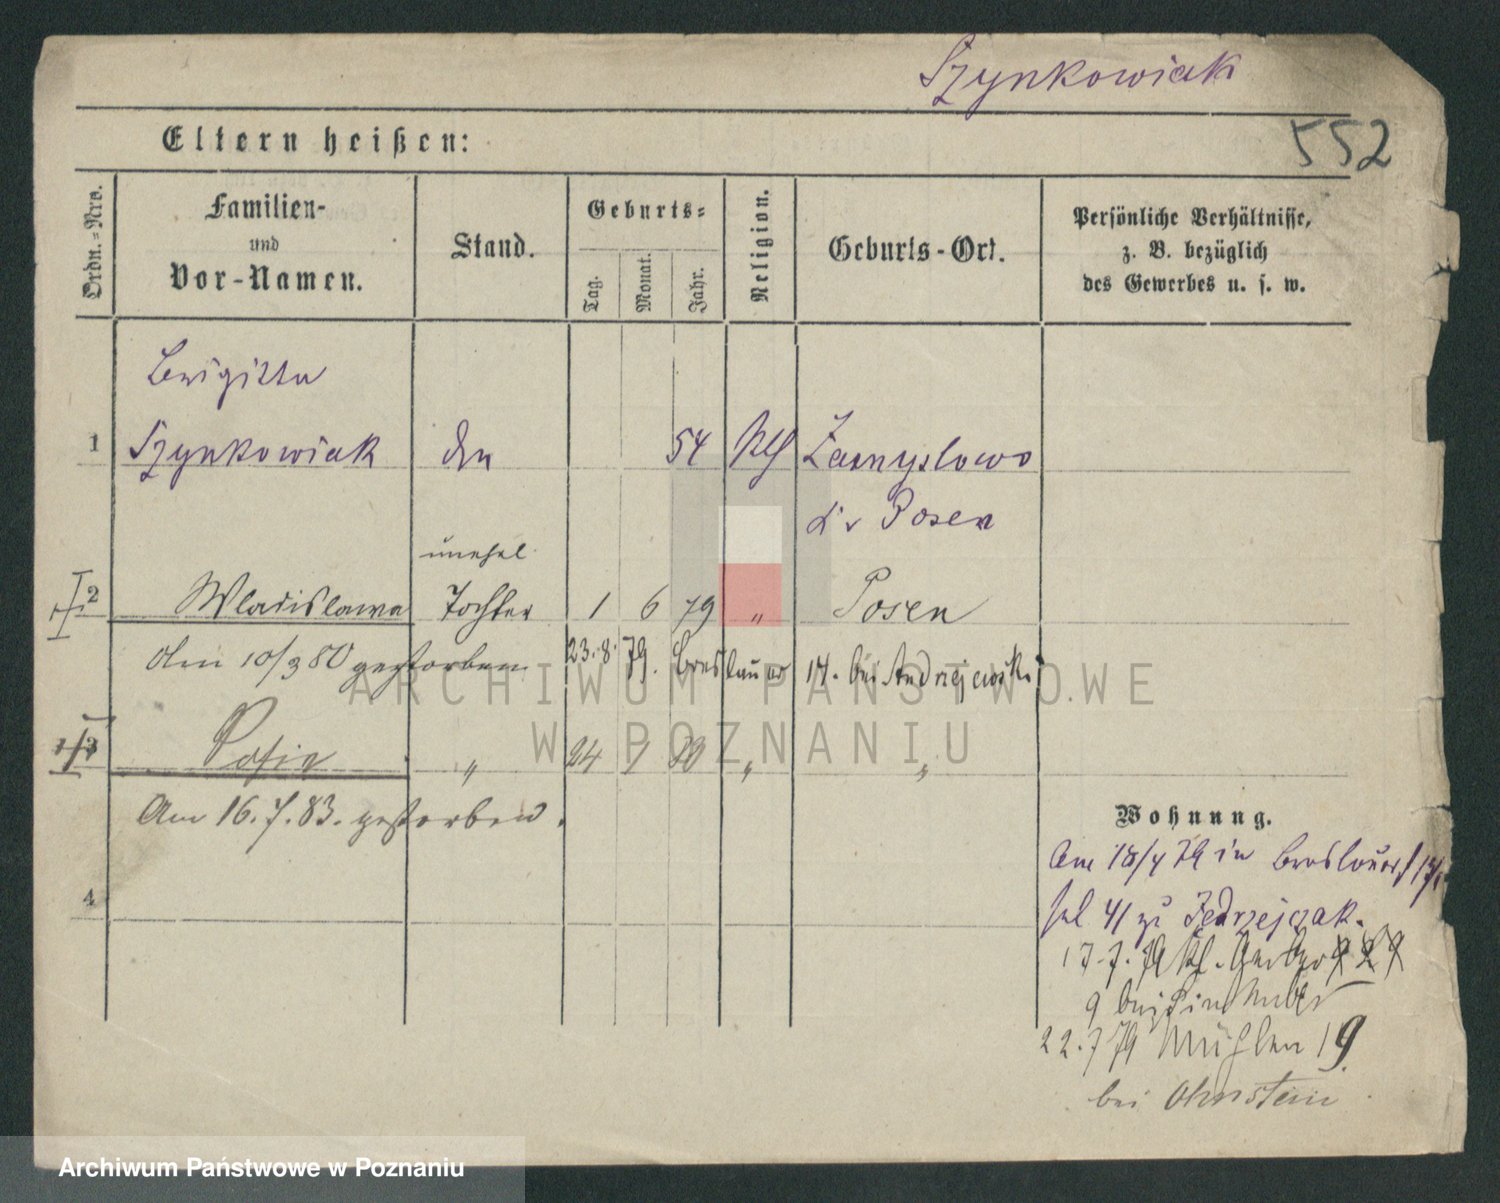 Szynkowiak
552
Eltern heißen:
Ordn.-Nro.
Familien-
und
Vor-Namen.
Stand.
Geburts-
Tag.
Monat.
Jahr.
Religion.
Geburts-Ort.
Persönliche Verhältnisse,
z. B. bezüglich
des Gewerbes u. s. w.
Brigitta
1 Szynkowiak 54 Kth Zamyslowo
Posen
unehel
2 Wladislawa Tochter 1 6 79 " Posen
Am 10/3 80 gestorben 23.8.79. Breslauer 17. bei Andrzejewski
3 " 24 " "
Am 16.7.83. gestorben.
Wohnung.
4
Am 18/4 79 in Breslauer 17/
zu Jędrzejczak.
17.7.79 Kl. 
9 bei
22.7 79 Mühlen 19
bei Ohnstein
ARCHIWUM PAŃSTWOWE
W POZNANIU
Archiwum Państwowe w Poznaniu